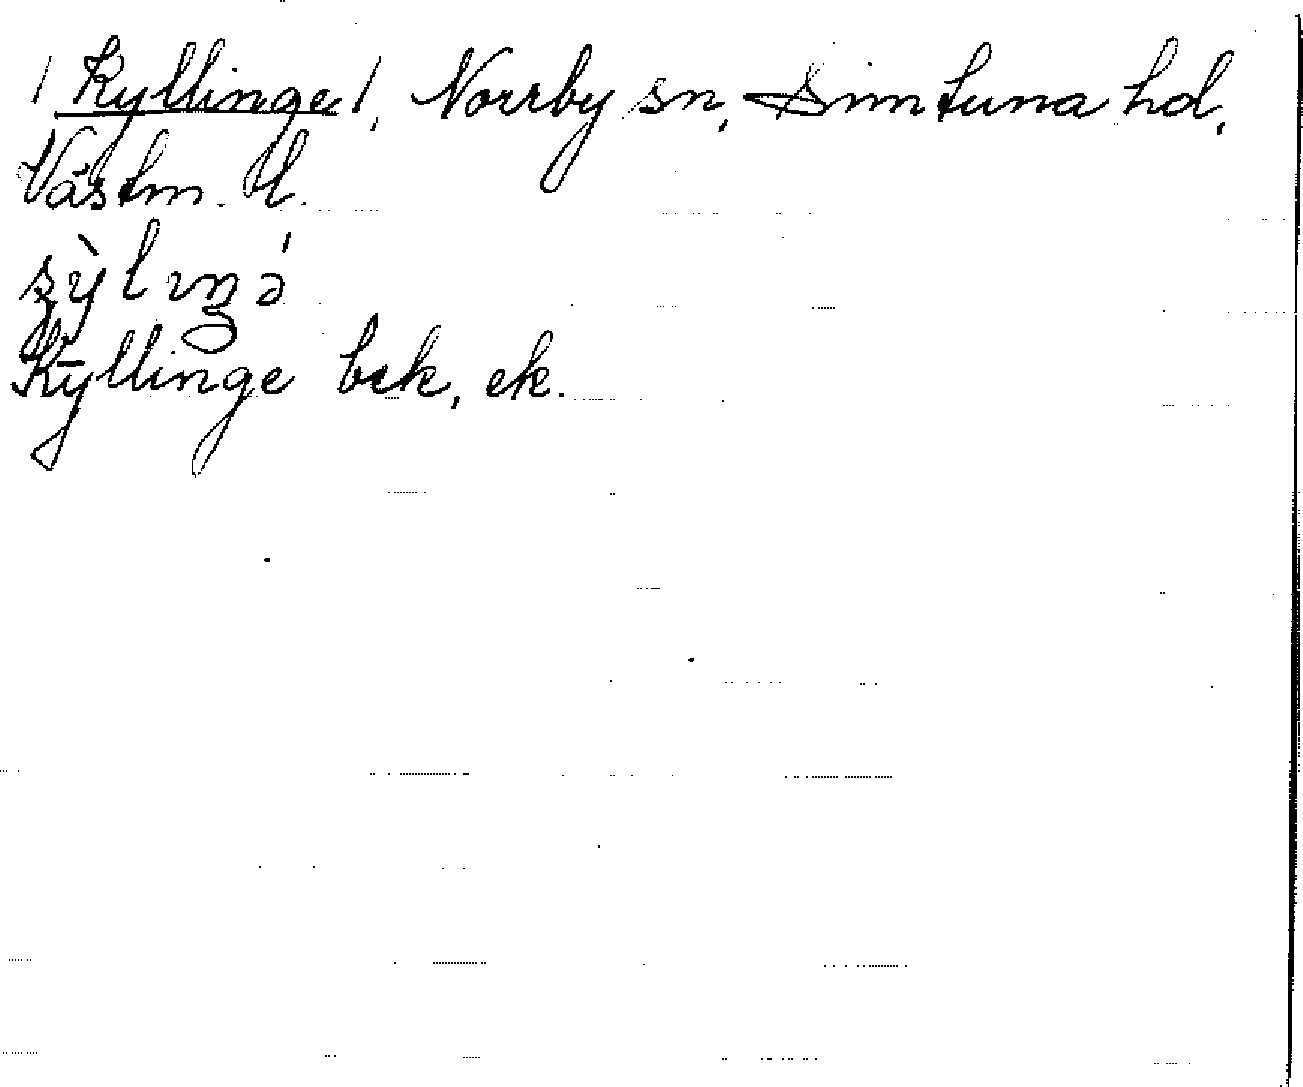 / Kyllinge /, Norrby sn, Simtuna hd,
Västm. l.
Kyllinge bek, ek.